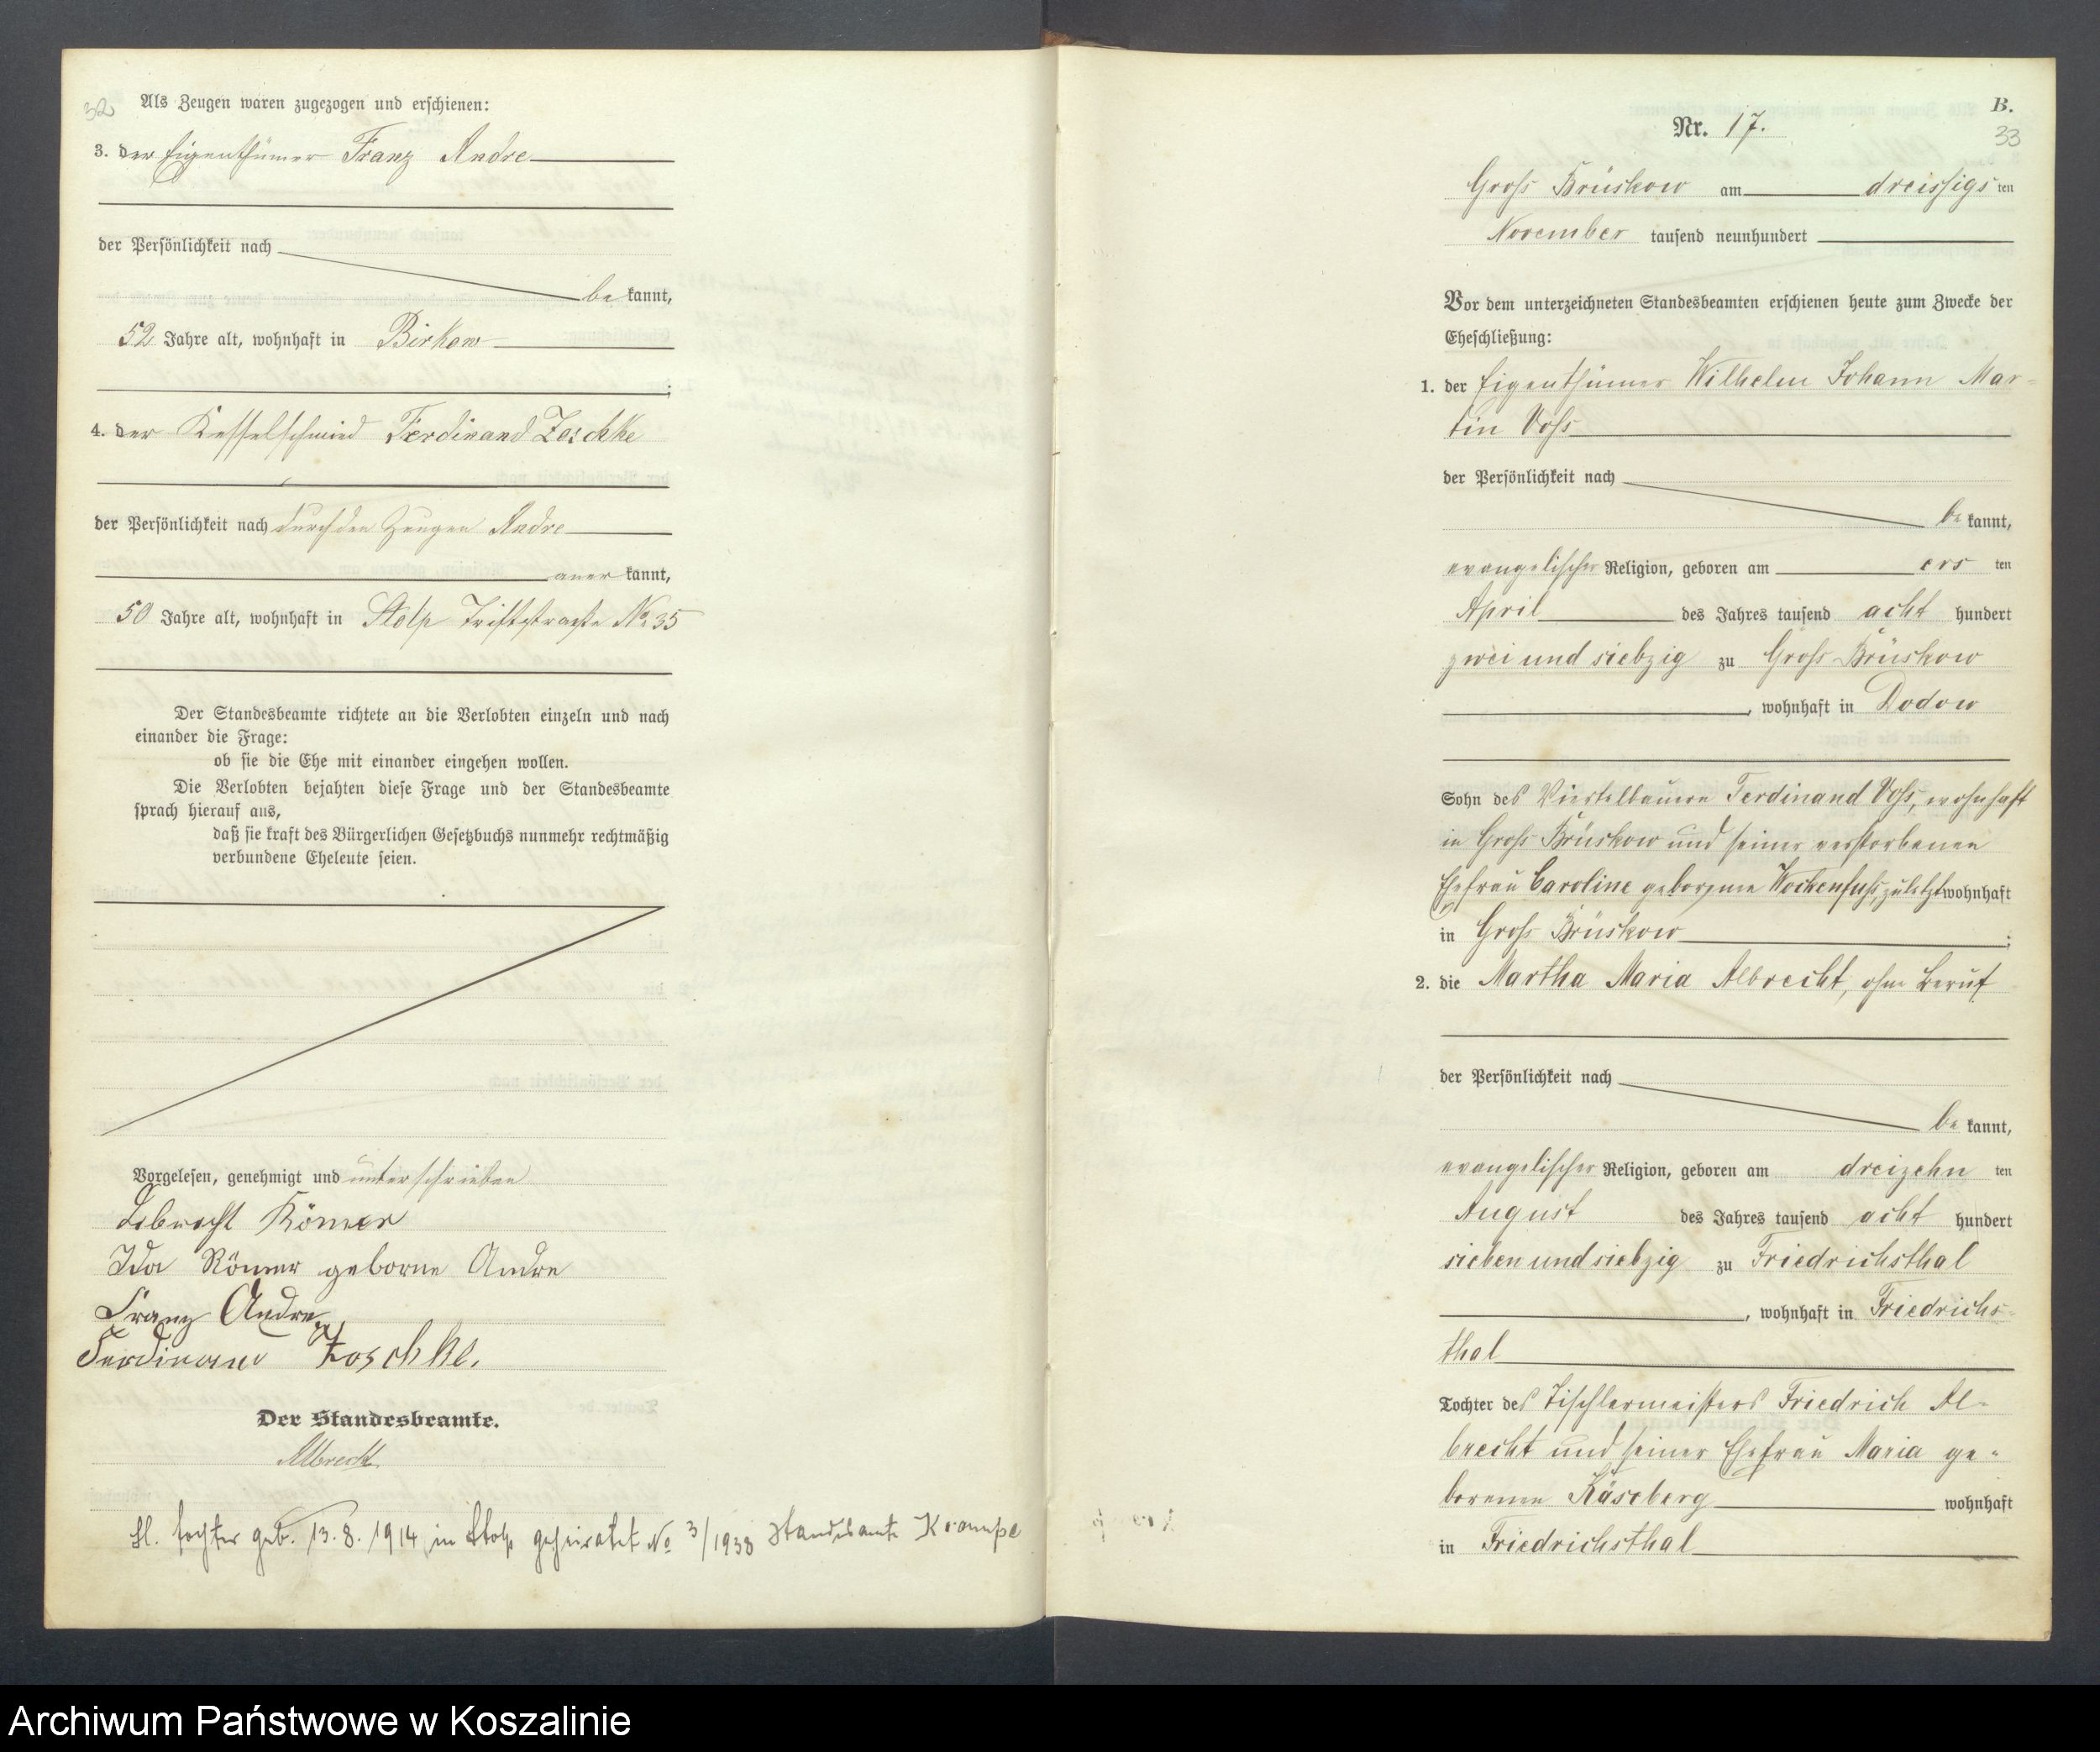 32
Als Zeugen waren zugezogen und erschienen:
3. der Eigenthümer Franz Andre
der Persönlichkeit nach
be kannt,
52 Jahre alt, wohnhaft in Birkow
;
4. der Kesselschmied Ferdinand Zoschke
der Persönlichkeit nach durch den Zeugen Andre
aner kannt,
50 Jahre alt, wohnhaft in Stolp Triftstraße No 35
Der Standesbeamte richtete an die Verlobten einzeln und nach
einander die Frage:
ob sie die Ehe mit einander eingehen wollen.
Die Verlobten bejahten diese Frage und der Standesbeamte
sprach hierauf aus,
daß sie kraft des Bürgerlichen Gesetzbuchs nunmehr rechtmäßig
verbundene Eheleute seien.
Vorgelesen, genehmigt und unterschrieben
Römer
Ida Römer geborne Andre
Franz Andre
Ferdinand Zoschke.
Der Standesbeamte.
Albrecht.
Tochter geb. 13. 8. 1914 in Stolp geheiratet No 3/1938 Standesamte Krampe
B.
33
Nr. 17.
Groß Brüskow am dreißigs ten
November tausend neunhundert
Vor dem unterzeichneten Standesbeamten erschienen heute zum Zwecke der
Eheschließung:
1. der Eigenthümer Wilhelm Johann Mar-
tin Voß
der Persönlichkeit nach
be kannt,
evangelischer Religion, geboren am ers ten
April des Jahres tausend acht hundert
zwei und siebzig zu Groß Brüskow
, wohnhaft in Dodow
Sohn des Viertelbauern Ferdinand Voß, wohnhaft
in Groß Brüskow und seiner verstorbenen
Ehefrau Caroline geborenen Wockenfuß, zuletzt wohnhaft
in Groß Brüskow ;
2. die Martha Maria Albrecht, ohne Beruf
der Persönlichkeit nach
be kannt,
evangelischer Religion, geboren am dreizehn ten
August des Jahres tausend acht hundert
sieben und siebzig zu Friedrichsthal
, wohnhaft in Friedrichs-
thal
Tochter des Tischlermeisters Friedrich Al-
brecht und seiner Ehefrau Maria ge-
borenen Käseberg wohnhaft
in Friedrichsthal
Archiwum Państwowe w Koszalinie